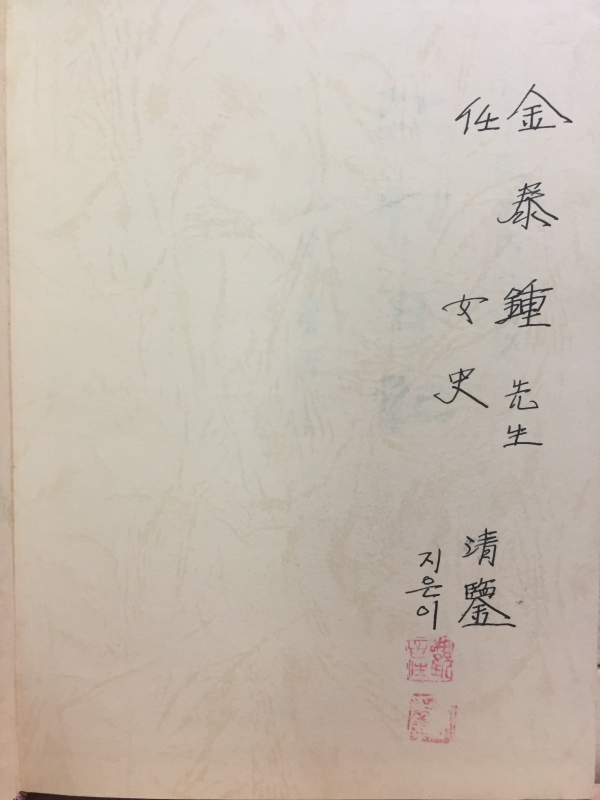 金泰鍾 先生
任 女史
清鑒
지은이